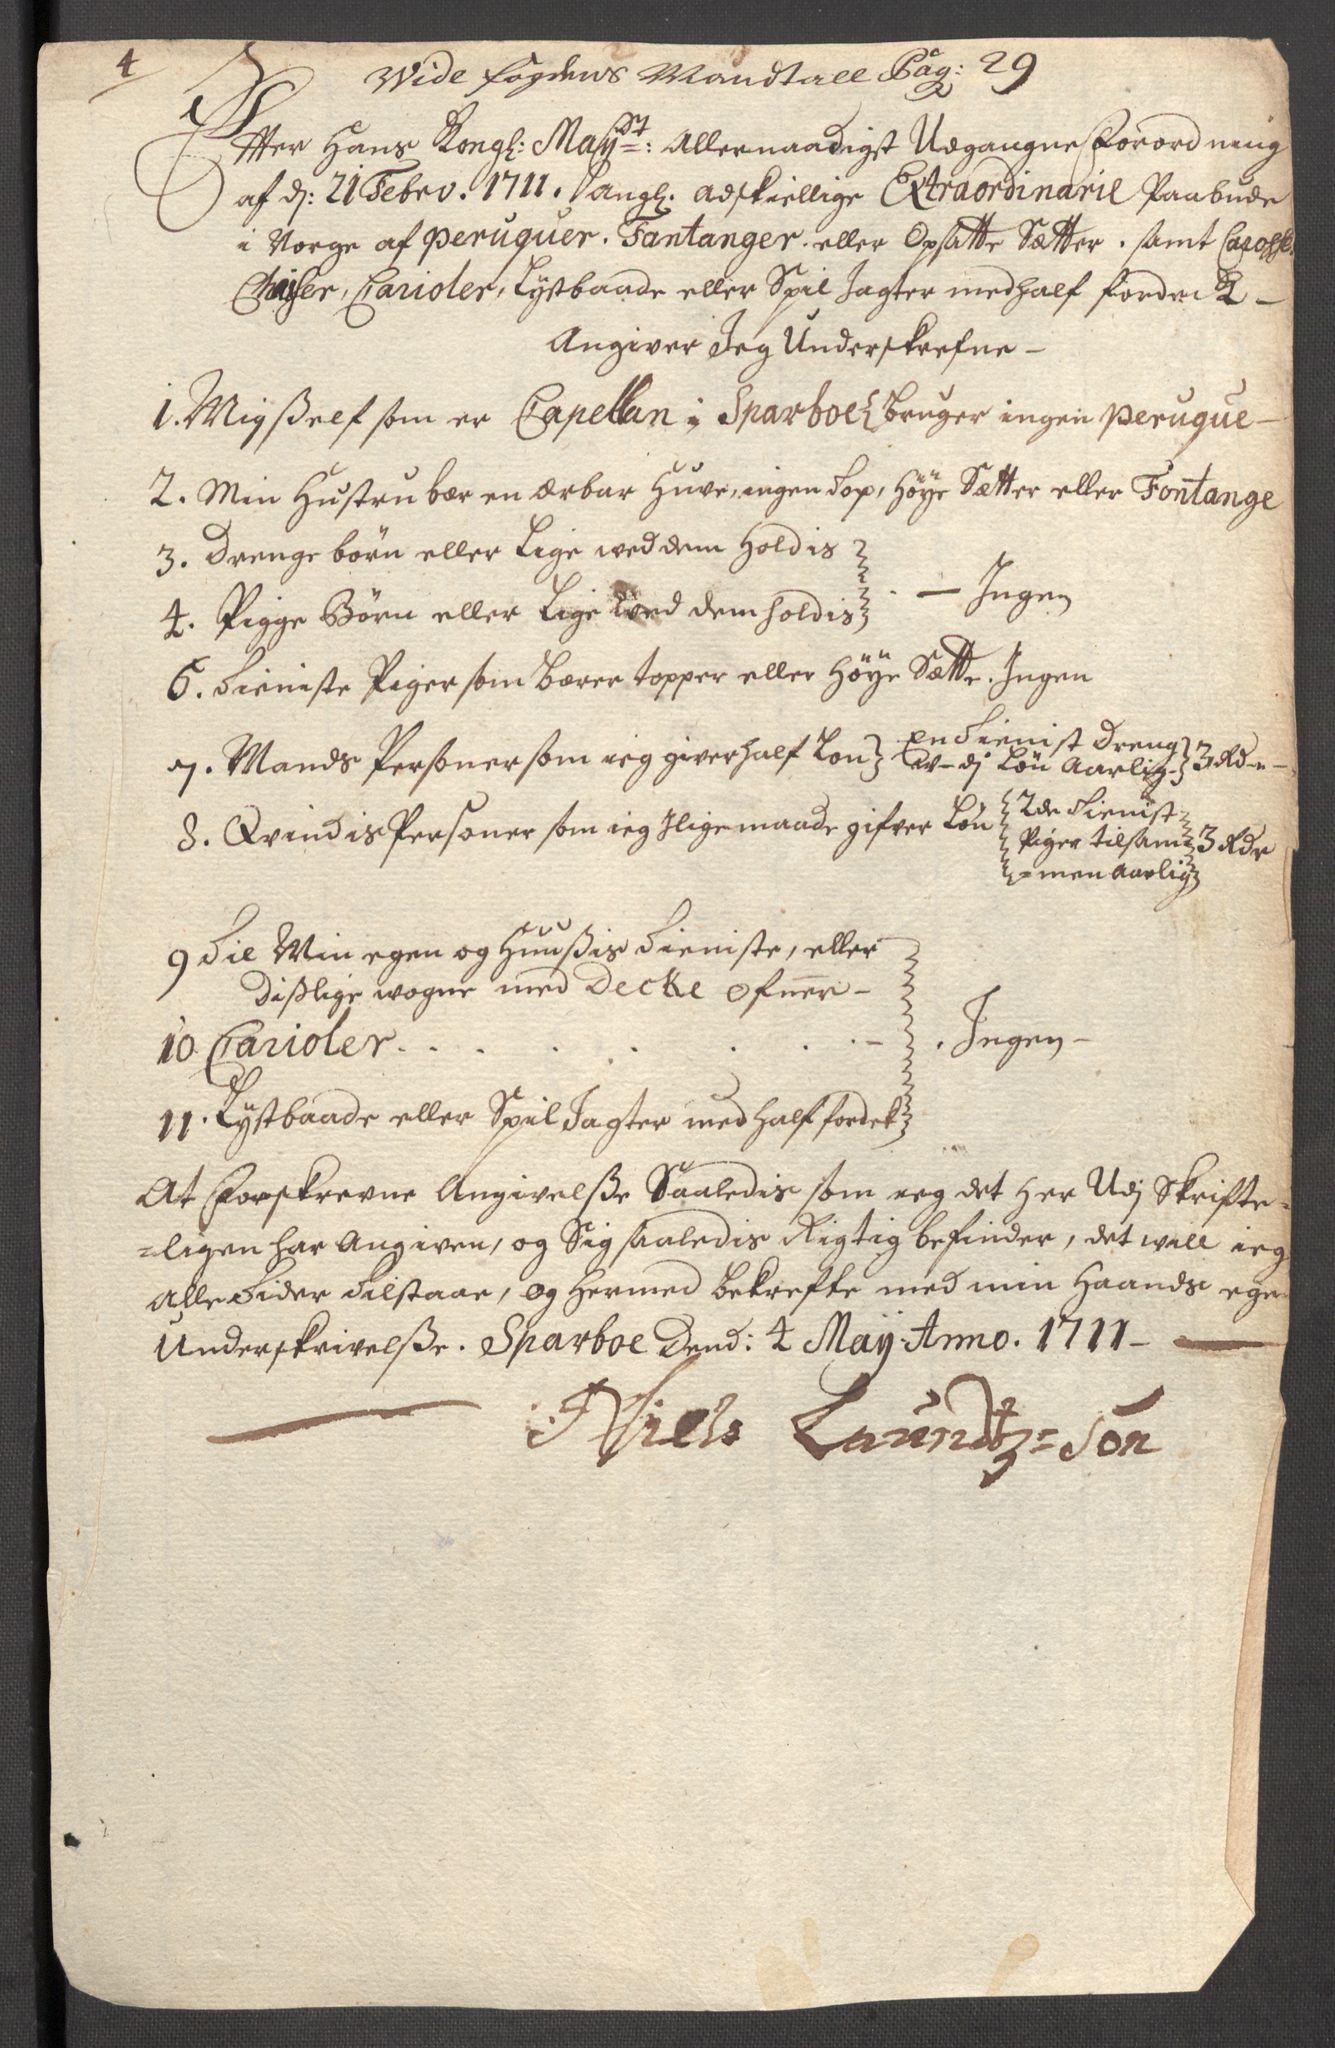 4
Wide fogdens Mandtall Pag: 29
Efter Hans Kongl: Mayst: Allernaadigst Udgangne Forordning
af dj: 21 Febrv. 1711. Langl. adskiellige Extraordinarie Paabude
i Norge af peruquer. Fantanger. eller Opsatte Sætter. samt Carosser
Chaiser, Carioler, Lystbaade eller Spil Jagter med half fordeck -
Angiver Jeg Underskrefne -
1. Mig Self som er Capellan i Sparboe bruger ingen peruque -
2. Min Hustru bær en ærbar Huve, ingen Top, Høÿe Sætter eller Fontange
3. Drenge børn eller Lige ved dem Holdis
4. Pigge Børn eller Lige wed dem holdis - Ingen
6. Tieniste Piger som bærer topper eller Høÿe Sætte. Ingen
7. Mands Personer som ieg giver half Lon En Tienist Dreng
- dj Lön Aarlig - 3 Rdr -
8. Qvindis Personer som ieg Jligemaade gifver Lön 2de Tienist
Piger tilsam 3 Rdr
= men Aarlig
9 Til Min egen og Huusßis Tieniste, eller
Dißlige wogne med Decke ofuer -
10 Carioler. . . . . . . . - . Ingen -
11. Lystbaade eller Spil Jagter med half fordek
At Forskrevne Angivelße Saaledis som ieg det Her Udj Skrifte=
=ligen har Angiven, og Sig saaledis Rigtig befinder, det will ieg
alle Tider Tilstaae, og Hermed bekrefte med min Haands egen
Underskrivelße. Sparboe Dend: 4 Maÿ Anno. 1711 -
Niels Lauridtz=Søn